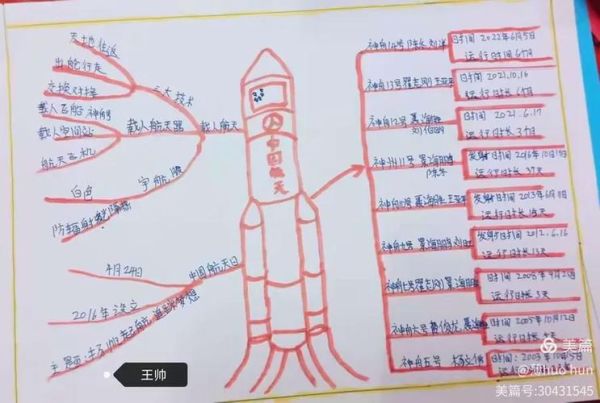 天地往返
出舱行走
交会对接
三大技术
载人飞船
载人空间站
航天飞机
载人航天器
载人航天
白色
防辐射
宇航服
4月24日
中国航天日
2016年设立
主题:
中国航天
神舟14号 陈冬 刘洋
时间 2022年6月5日
运行时长 6个月
神舟13号 翟志刚 王亚平
时间 2021.10.16
运行时长 6个月
神舟12号 聂海胜
刘伯明
时间 2021.6.17
运行时长 3个月
神舟11号 景海鹏
陈冬
发射时间 2016年10月
运行时长
聂海胜 王亚平
发射时间 2013年6月
运行时长
神舟九号 景海鹏 刘旺
发射时间 2012.6.16
运行时长 13天
神舟七号 翟志刚 景海鹏
时间 2008年9月
运行时长 3天
神舟六号 费俊龙 聂海胜
时间 2005年10月12日
运行时长
神舟五号 杨利伟
时间: 2003年10月15日
王帅
美篇
美篇号:30431545